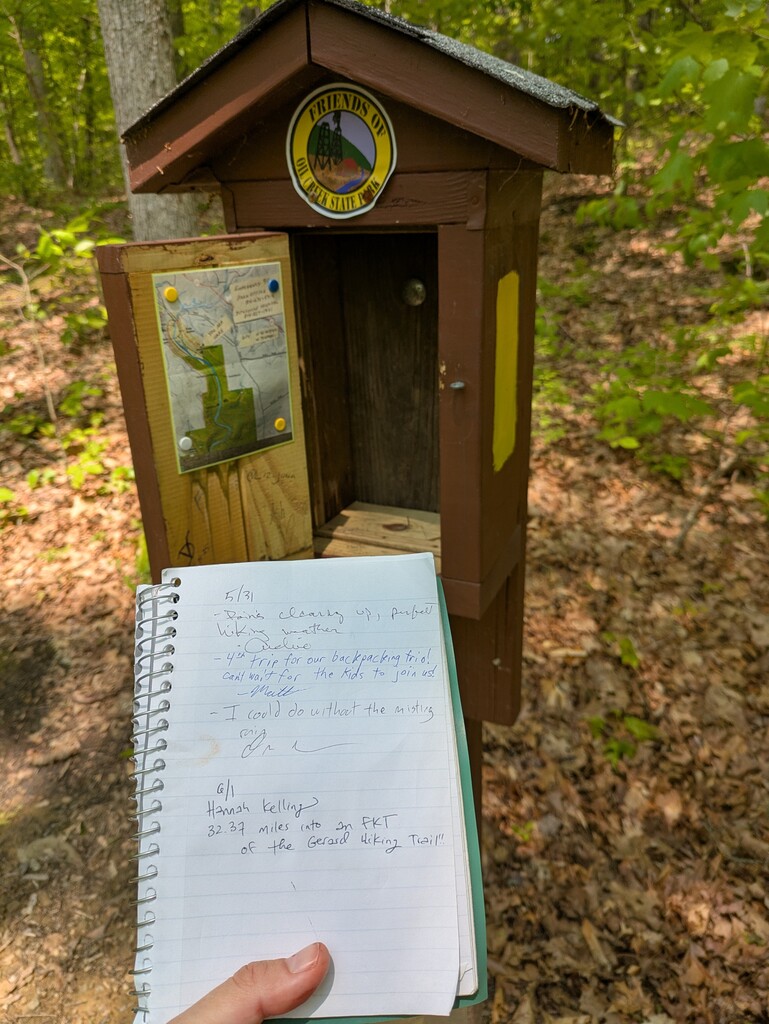 FRIENDS OF
OIL CREEK STATE PARK
5/31
clearing up, perfect
hiking weather
- 4th trip for our backpacking trio!
can't wait for the kids to join us!
- Matt
- I could do without the misting
rain
6/1
Hannah Kelling
32.37 miles into an FKT
of the Gerard Hiking Trail!!